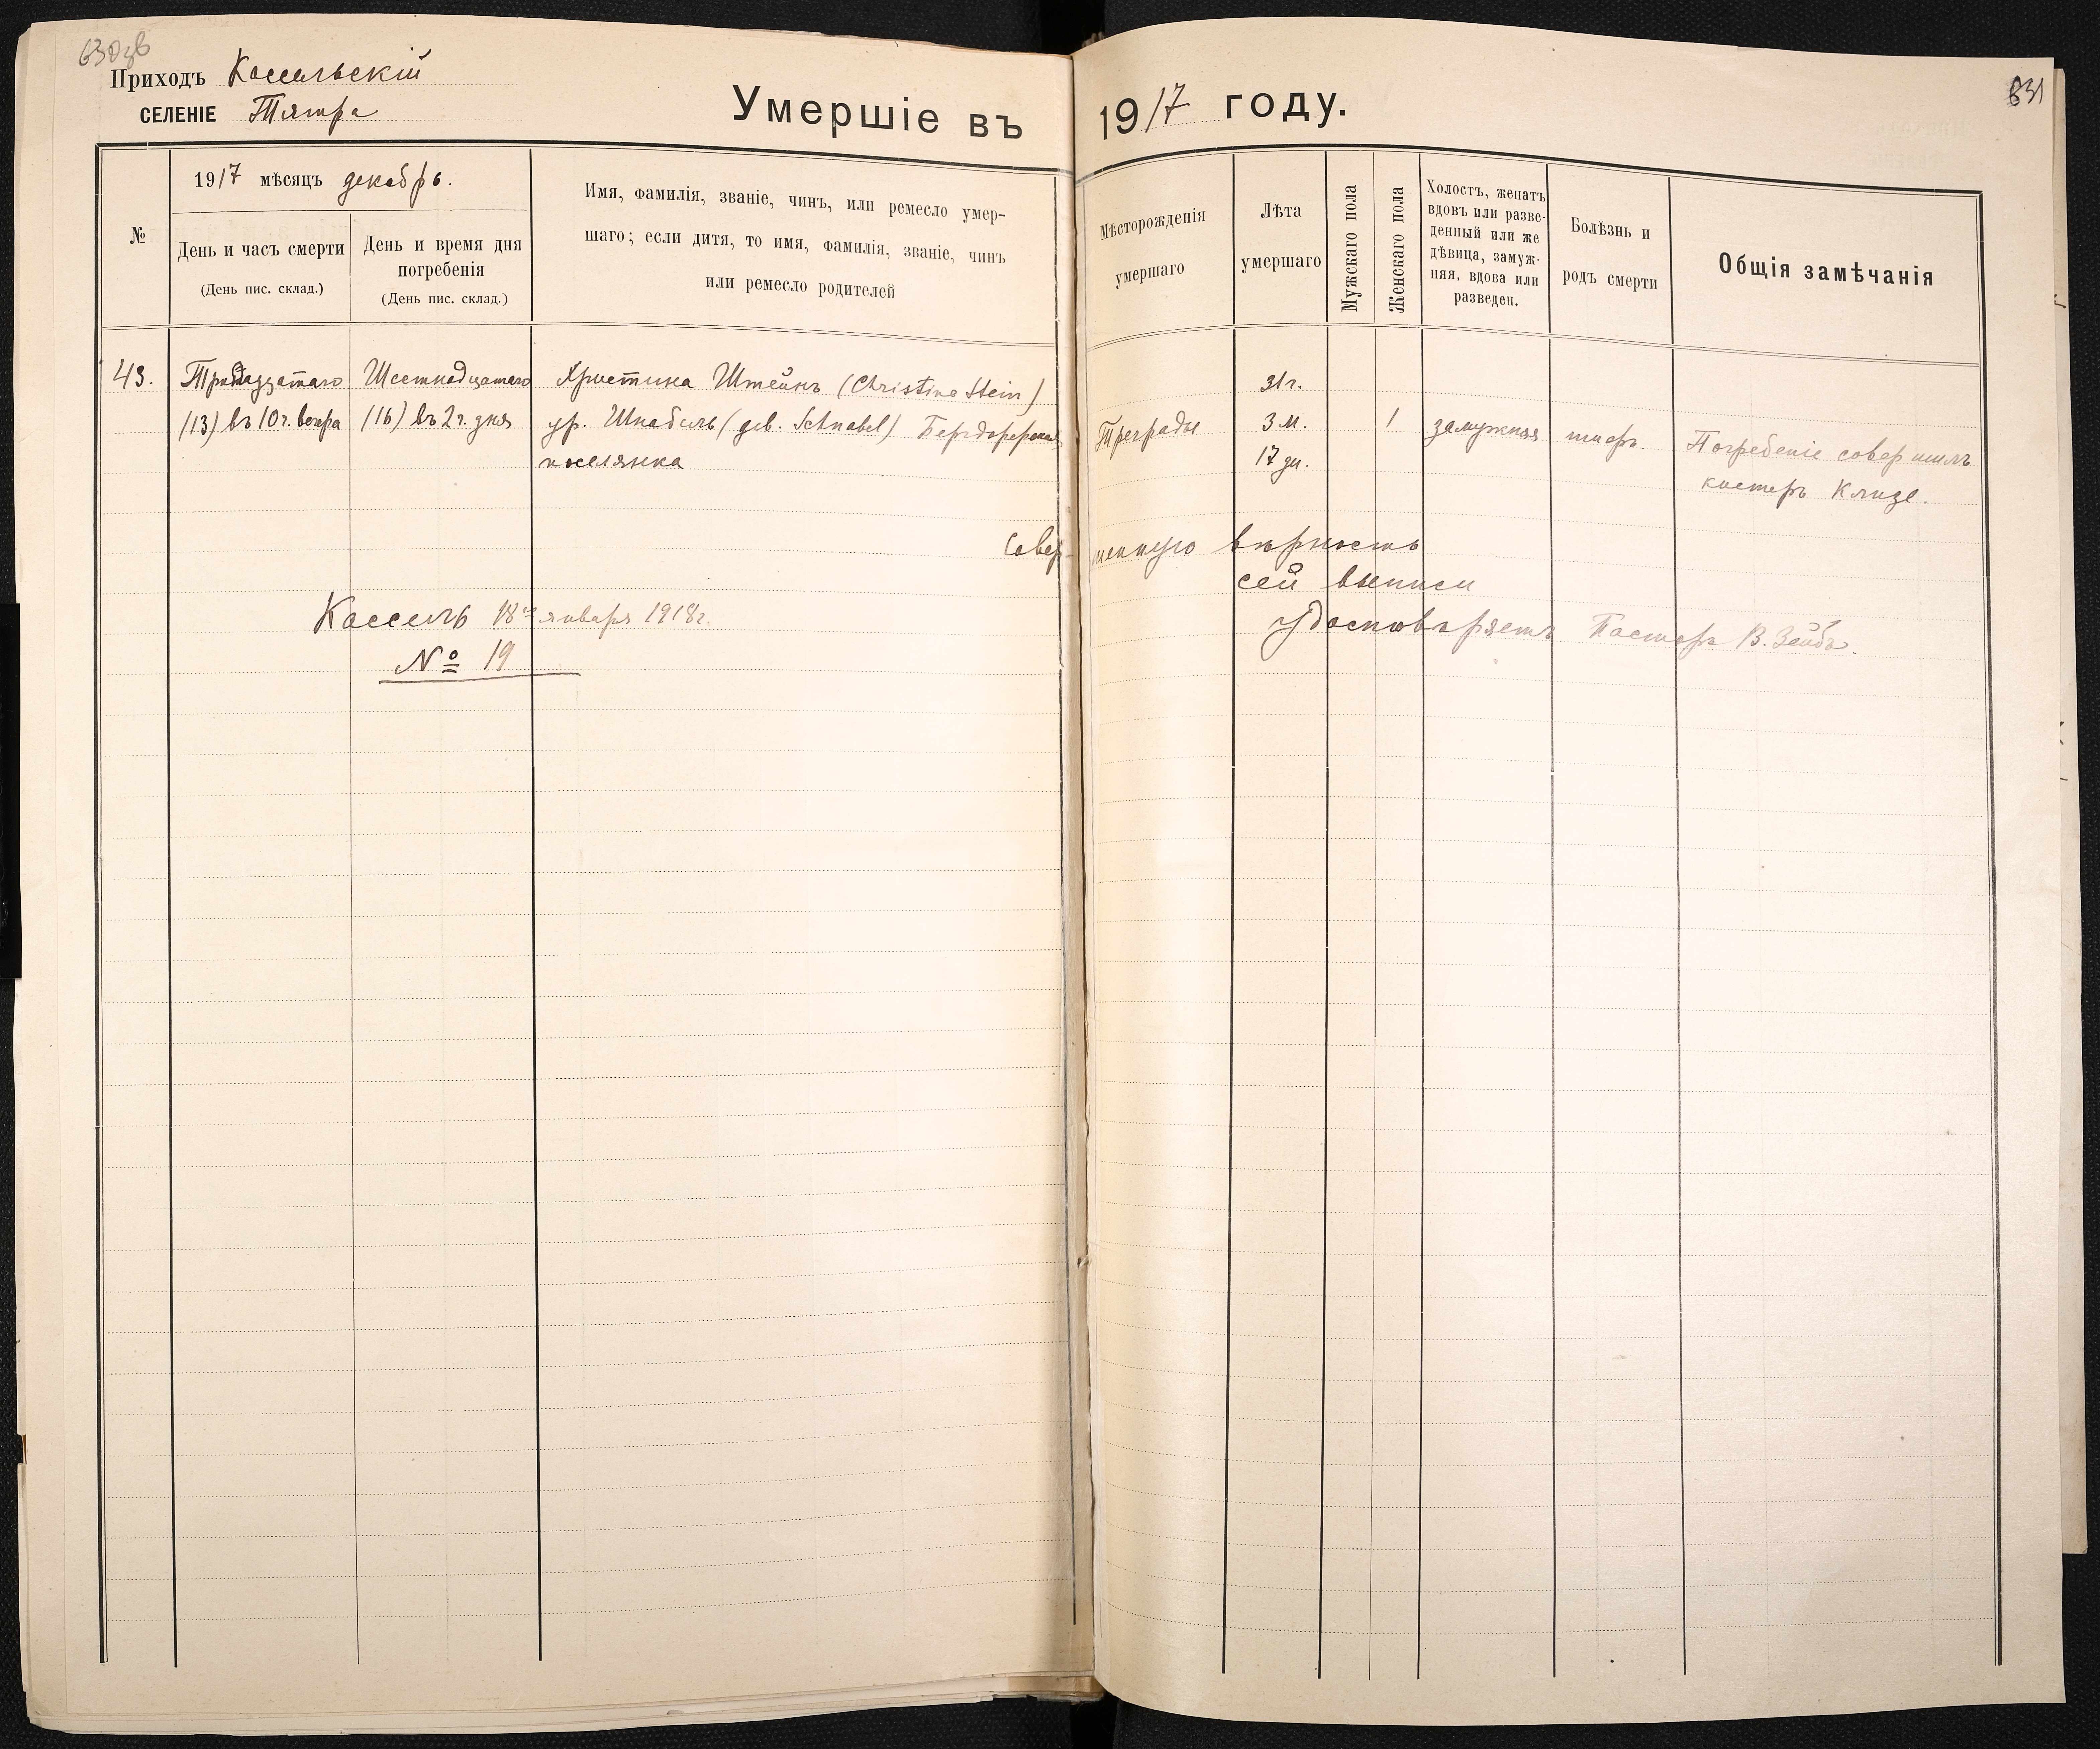 Приходъ Кассельскій
СЕЛЕНІЕ Тятра
Умершіе въ 1917 году.
831
№
1917 мѣсяцъ декабрь.
День и часъ смерти
(День пис. склад.)
День и время дня
погребенія
(День пис. склад.)
Имя, фамилія, званіе, чинъ, или ремесло умер-
шаго; если дитя, то имя, фамилія, званіе, чинъ
или ремесло родителей
Мѣсторожденія
умершаго
Лѣта
умершаго
Мужскаго пола
Женскаго пола
Холостъ, женатъ
вдовъ или разве-
денный или же
дѣвица, замуж-
няя, вдова или
разведен.
Болѣзнь и
родъ смерти
Общія замѣчанія
43.
Тринадцатаго
(13) въ 10 ч. вечера
Шестнадцатаго
(16) въ 2 ч. дня
Христина Штейнъ (Christine Stein)
ур. Шнабель (geb. Schnabel) Бергдорфская
поселянка
Трехграды
31 г.
3 м.
17 дн.
1
замужняя
тифъ.
Погребеніе совершилъ
кистеръ Клизе.
Совер- шенную вѣрность
сей выписи
удостовѣряетъ Пасторъ В. Зейбъ.
Кассель 18го января 1918 г.
№ 19